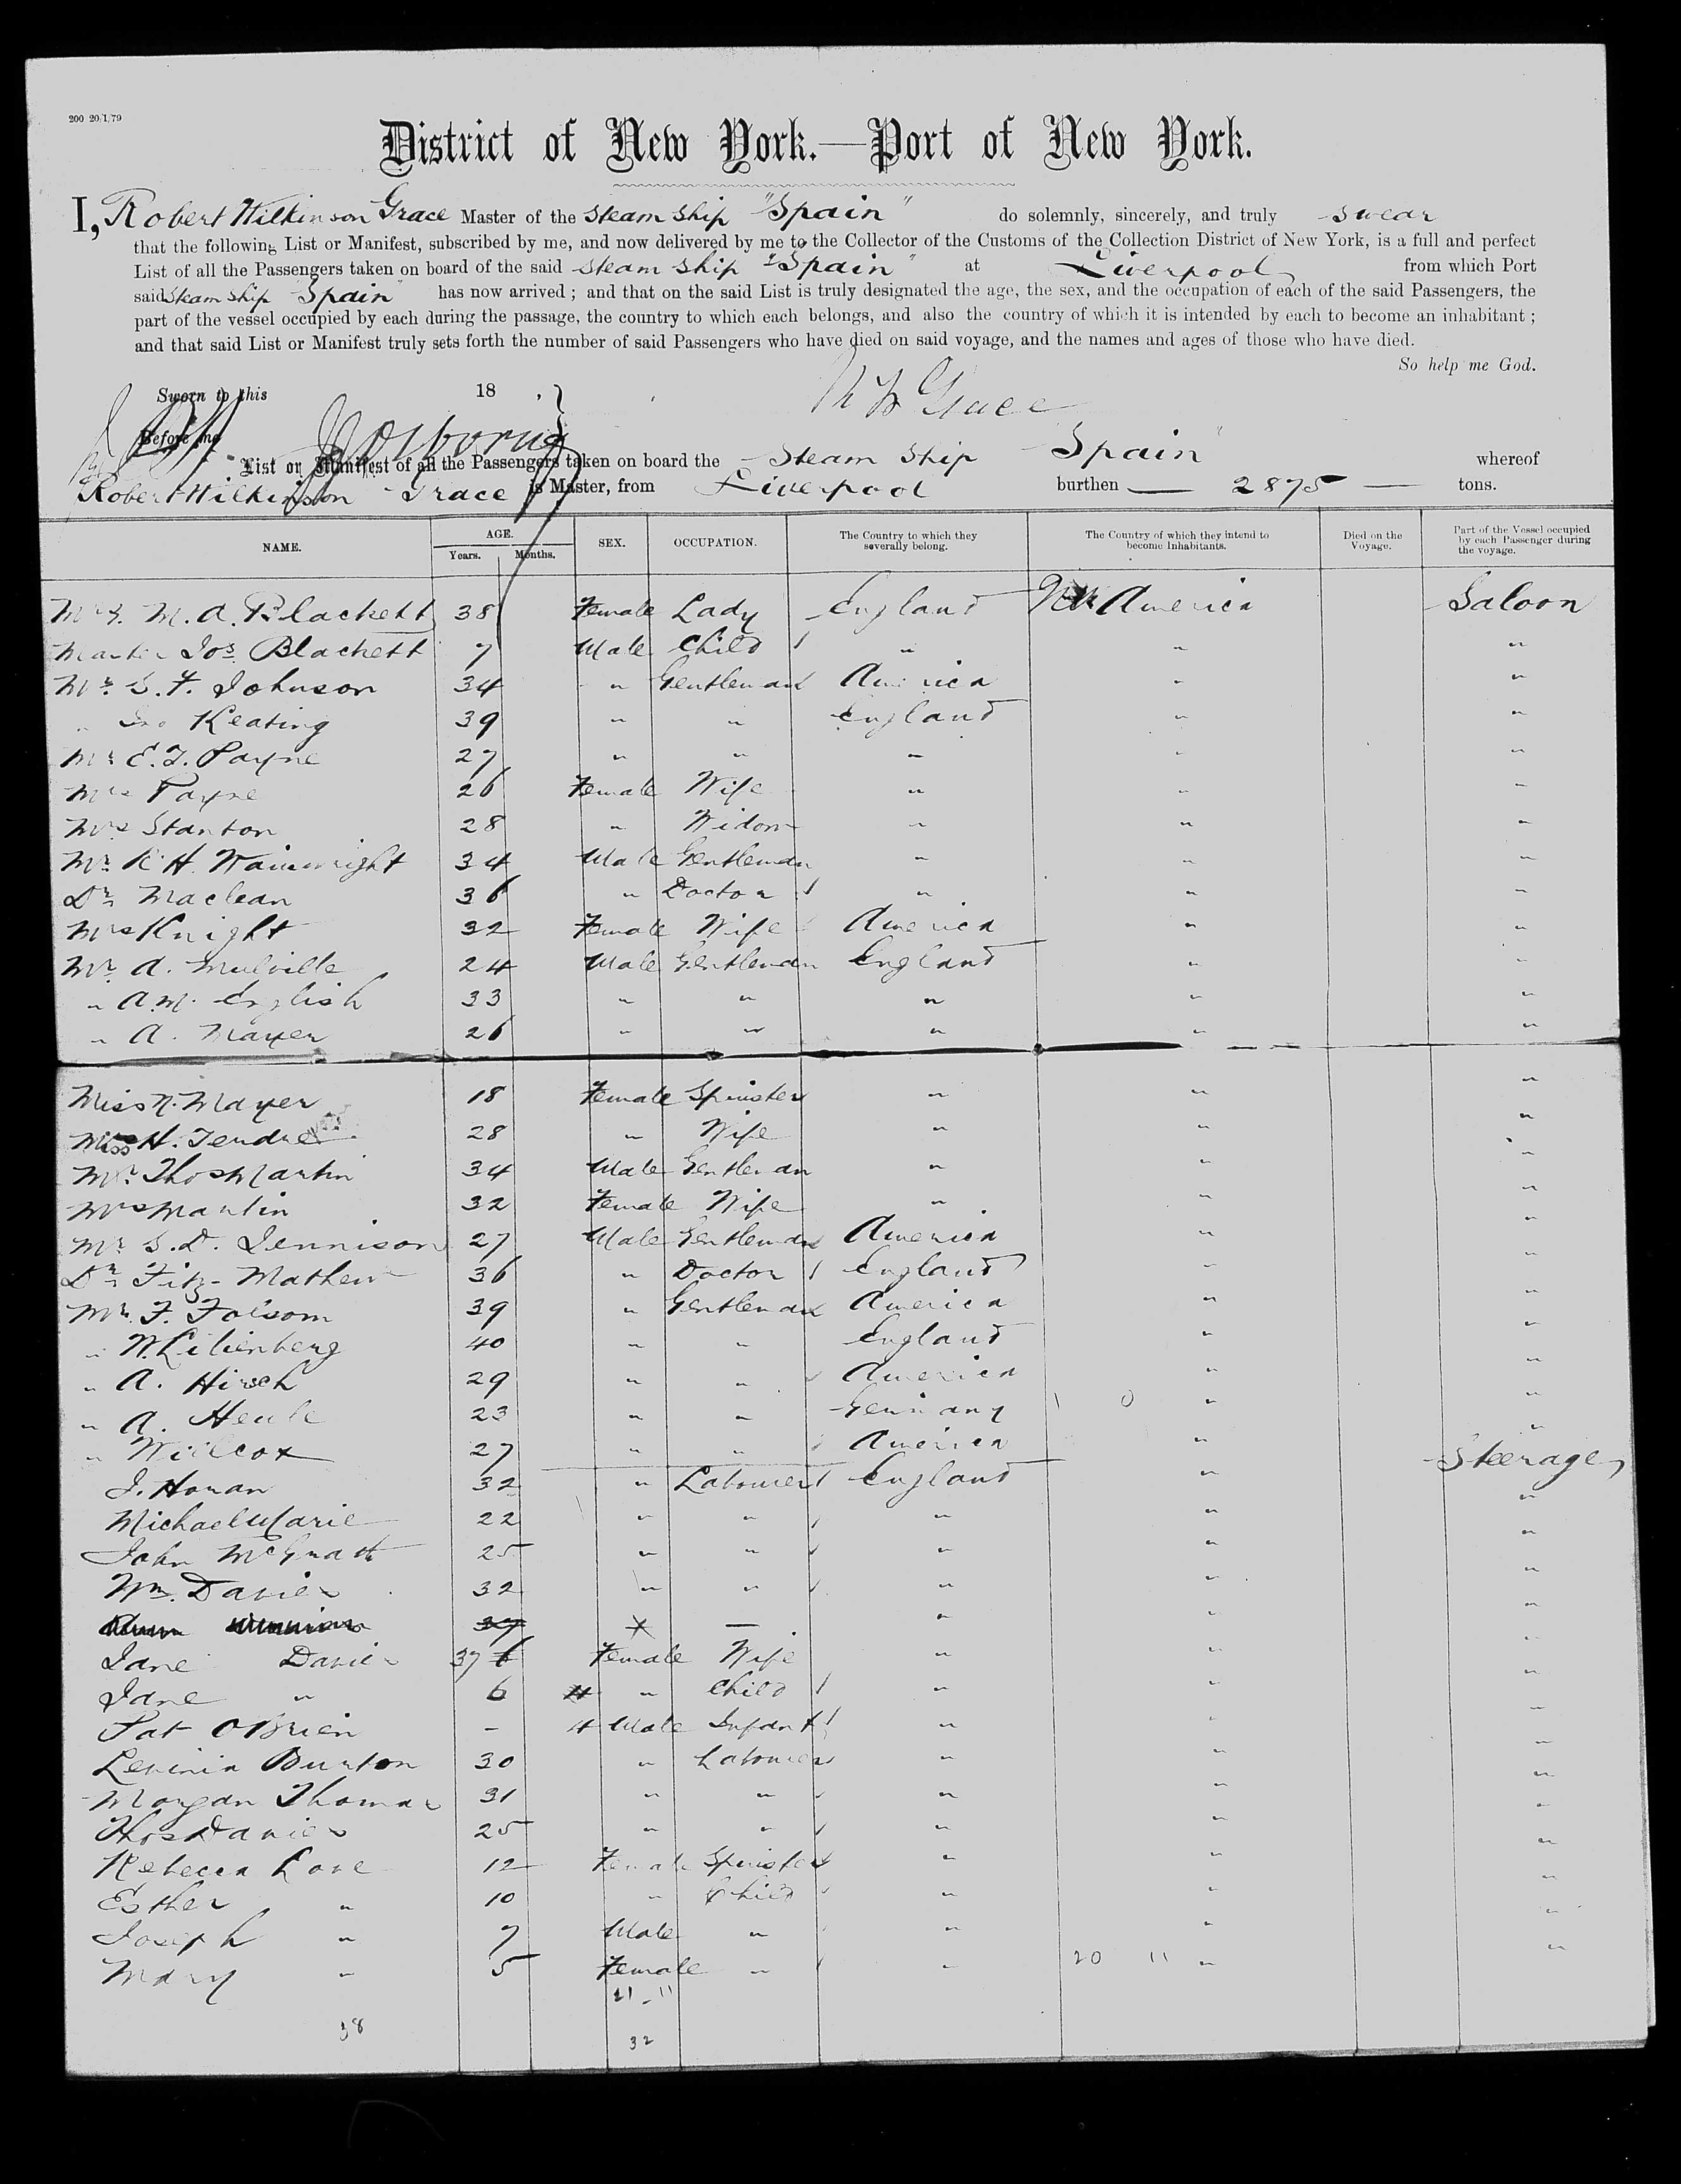 200 20/1/79
District of New York.—Port of New York.
I, Robert Wilkinson Grace Master of the Steam Ship "Spain" do solemnly, sincerely, and truly swear
that the following List or Manifest, subscribed by me, and now delivered by me to the Collector of the Customs of the Collection District of New York, is a full and perfect
List of all the Passengers taken on board of the said Steam Ship "Spain" at Liverpool from which Port
said Steam Ship "Spain" has now arrived; and that on the said List is truly designated the age, the sex, and the occupation of each of the said Passengers, the
part of the vessel occupied by each during the passage, the country to which each belongs, and also the country of which it is intended by each to become an inhabitant;
and that said List or Manifest truly sets forth the number of said Passengers who have died on said voyage, and the names and ages of those who have died.
So help me God.
Sworn to this 18 , }
Grace
Before me
List or Manifest of all the Passengers taken on board the Steam Ship "Spain" whereof
Robert Wilkinson Grace is Master, from Liverpool burthen — 2875 — tons.
NAME. AGE. Years. Months. SEX. OCCUPATION. The Country to which they severally belong. The Country of which they intend to become Inhabitants. Died on the Voyage. Part of the Vessel occupied by each Passenger during the voyage.
Mrs. M. A. Blackett 38 Female Lady England America Saloon
Master Jos. Blackett 7 Male Child " " "
Mr. S. F. Johnson 34 " Gentleman America " "
" Jno Keating 39 " " England " "
Mr E. T. Payne 27 " " " " "
Mrs Payne 26 Female Wife " " "
Mrs Stanton 28 " Widow " " "
Mr. R. H. Wainwright 34 Male Gentleman " " "
Dr. Maclean 36 " Doctor " " "
Mrs Knight 32 Female Wife America " "
Mr. A. Mulville 24 Male Gentleman England " "
" A. M. English 33 " " " " "
" A. Mayer 26 " " " " "
Miss N. Mayer 18 Female Spinster " " "
Miss H. 28 " Wife " " "
Mr. Thos Martin 34 Male Gentleman " " "
Mrs Martin 32 Female Wife " " "
Mr. S. D. Jennison 27 Male Gentleman America " "
Dr. Fitz-Mathew 36 " Doctor England " "
Mr. F. Folsom 39 " Gentleman America " "
" W. Lilienberg 40 " " England " "
" A. Hirsch 29 " " America " "
" A. 23 " " Germany " "
" Willcox 27 " " America " "
J. Horan 32 " Labourer England " Steerage
Michael Marie 22 " " " " "
John McGrath 25 " " " " "
Wm. Davies 32 " " " " "
Jane Davies 37 Female Wife " " "
Jane " 6 " Child " " "
Pat O'Brien - 4 Male Infant " " "
Levinia Burton 30 " Labourer " " "
Morgan Thomas 31 " " " " "
Thos Davies 25 " " " " "
Rebecca Love 12 Female Spinster " " "
Esther " 10 " Child " " "
Joseph " 7 Male " " " "
Mary " 5 Female " " 20 11 " "
21 - 11
38 32